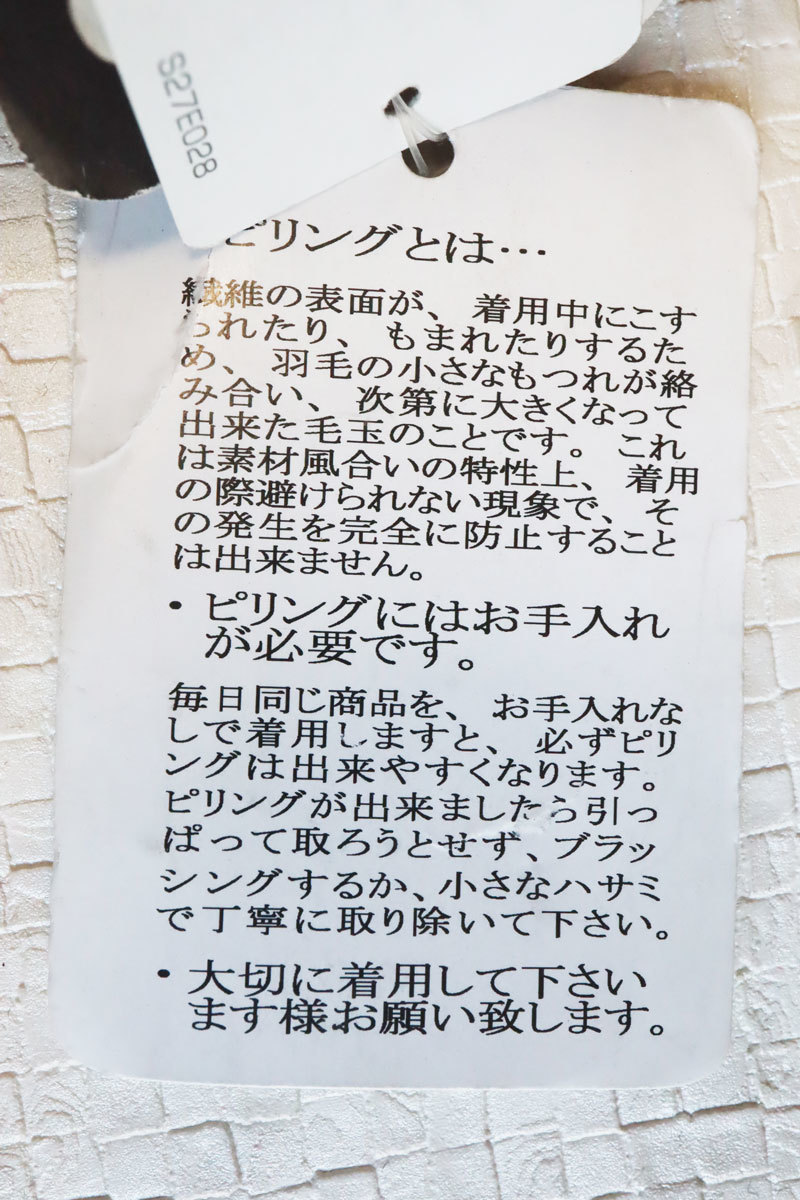 S27E028
ピリングとは…
繊維の表面が、着用中にこす
られたり、もまれたりするた
め、羽毛の小さなもつれが絡
み合い、次第に大きくなって
出来た毛玉のことです。これ
は素材風合いの特性上、着用
の際避けられない現象で、そ
の発生を完全に防止すること
は出来ません。
・ピリングにはお手入れ
が必要です。
毎日同じ商品を、お手入れな
しで着用しますと、必ずピリ
ングは出来やすくなります。
ピリングが出来ましたら引っ
ぱって取ろうとせず、ブラッ
シングするか、小さなハサミ
で丁寧に取り除いて下さい。
・大切に着用して下さい
ます様お願い致します。